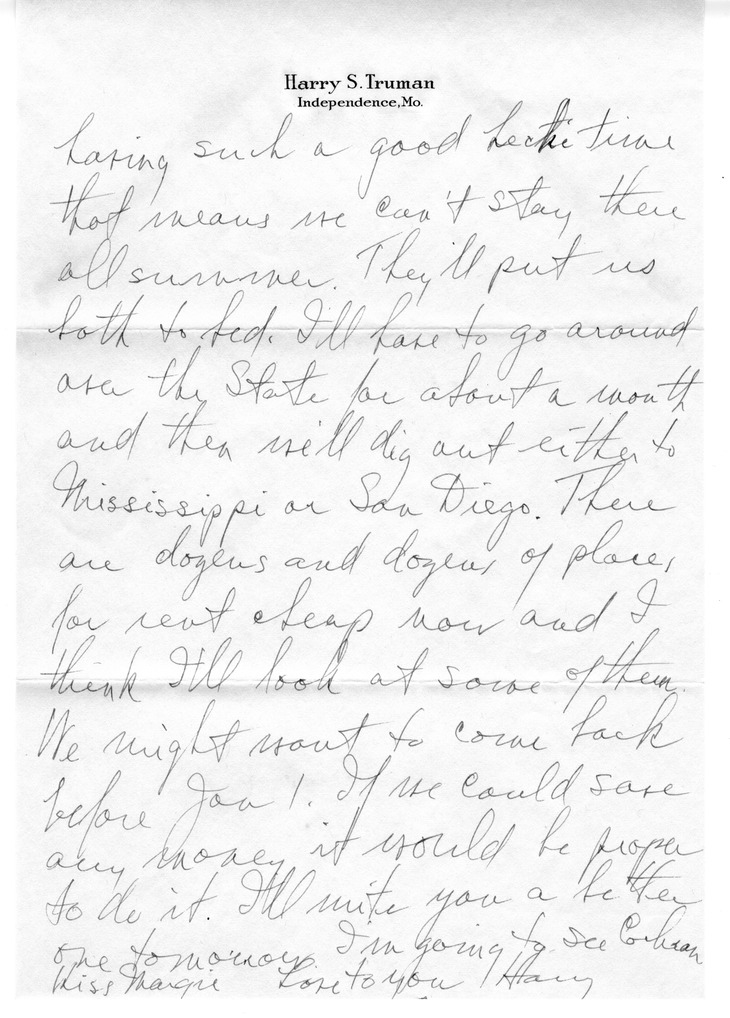 Harry S. Truman
Independence, Mo.
having such a good hectic time
that means we can't stay there
all summer. They'll put us
both to bed. I'll have to go around
over the State for about a month
and then we'll dig out either to
Mississippi or San Diego. There
are dozens and dozens of places
for rent cheap now and I
think I'll look at some of them.
We might want to come back
before Jan 1. If we could save
any money it would be proper
to do it. I'll write you a better
one tomorrow. I'm going to see Cochran
Kiss Margie Love to you Harry